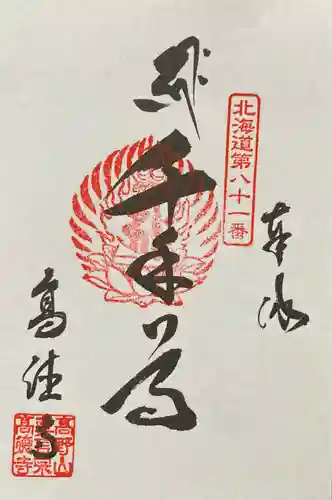 奉拝
北海道第八十一番
千手尊
高徳寺
高野山
真言宗
高德寺